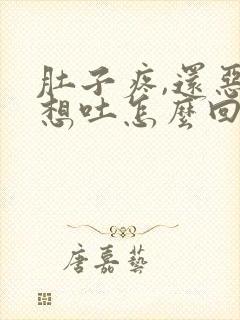 肚子疼,還惡
想吐怎麼回
唐嘉藝